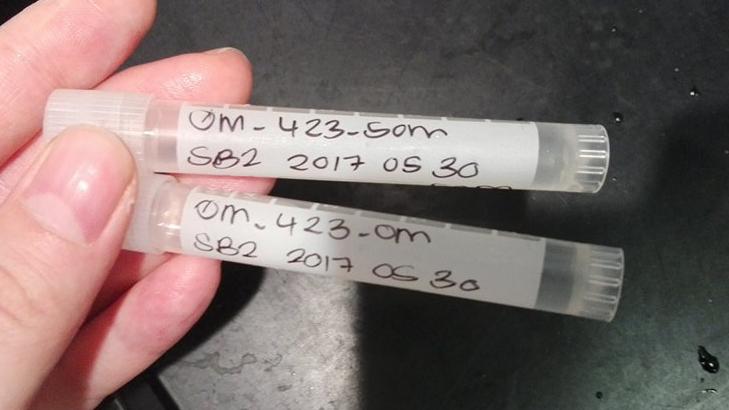 OM-423-50m
SB2 2017 05 30
OM-423-0m
SB2 2017 05 30